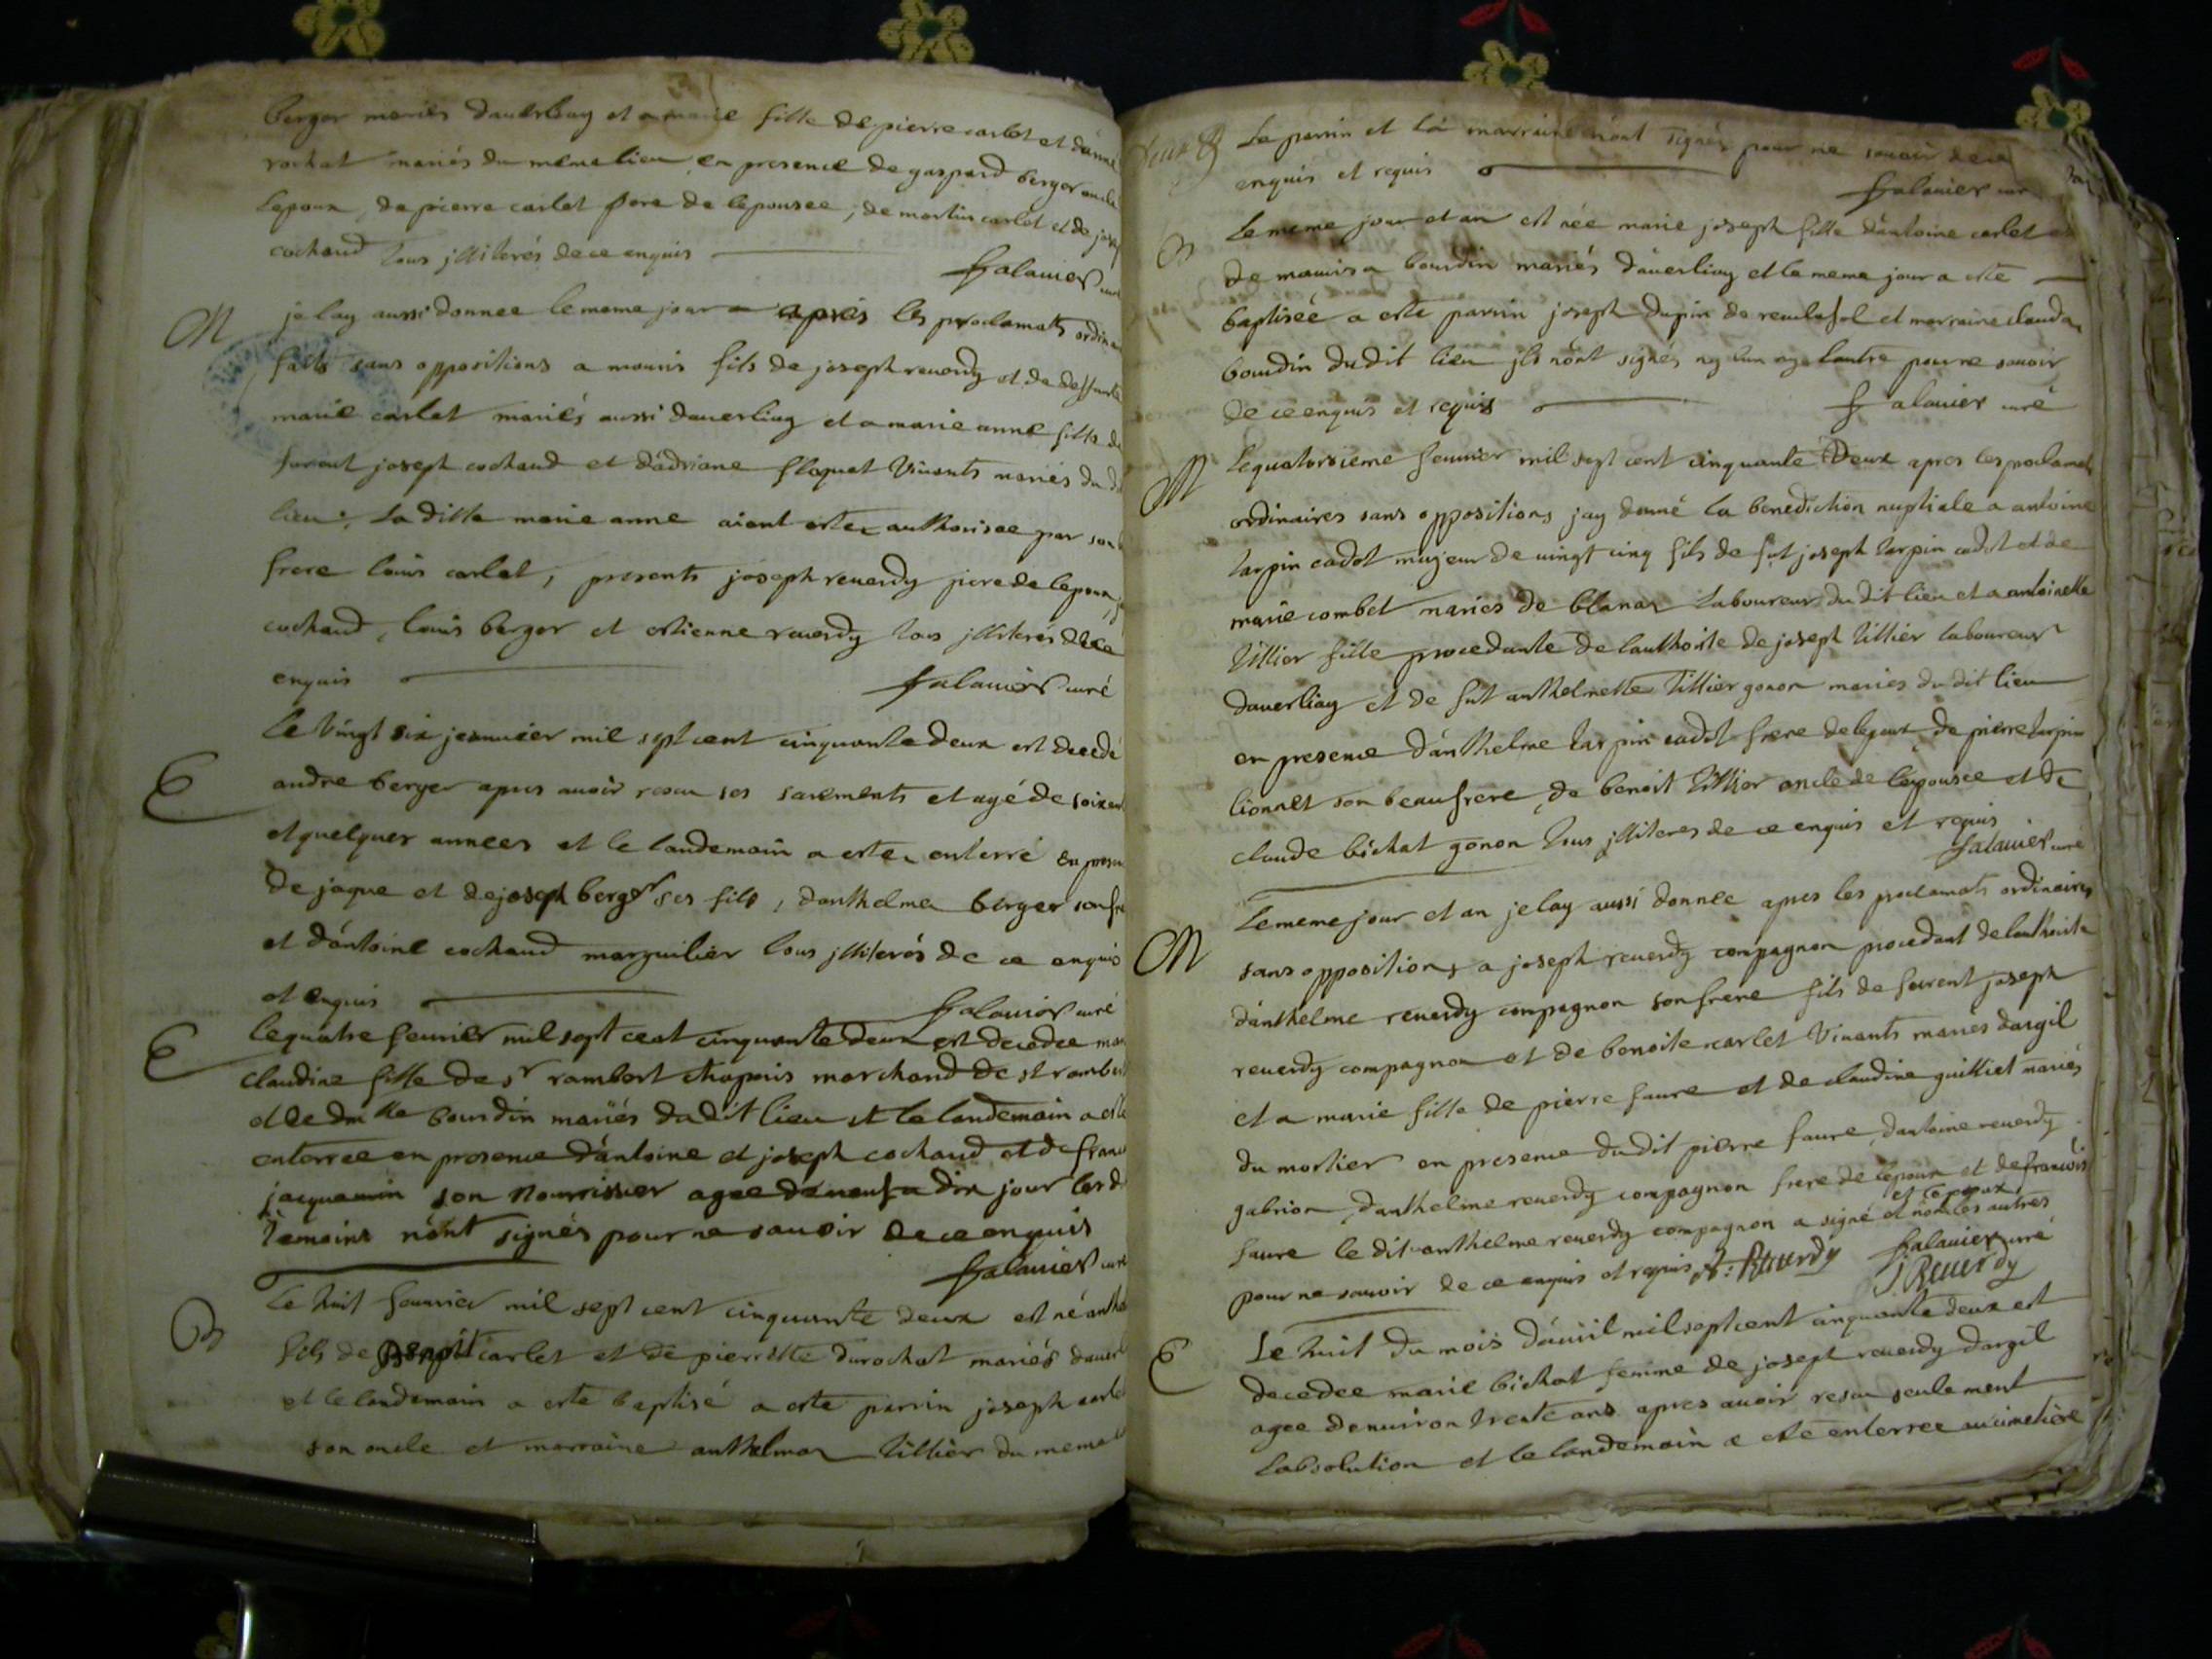 berger mariés dauerliay et a marie fille de pierre carlet et danne
rochat mariés du meme lieu en presence de gaspard berger oncle
lepoux, de pierre carlet pere de lepousee, de martin carlet et de
cochaud tous jlliterés de ce enquis
falavier curé
M
je lay aussi donnee le meme jour apres les proclamats
faits sans oppositions a mouris fils de joseph reuerdy et de deffunte
marie carlet mariés aussi dauerliay et a marie anne fille de
furent joseph cochaud et dádriane floquet Viuants mariés du
lieu, la ditte marie anne aiant este authorisee par son
frere louis carlet, presents joseph reuerdy pere de lepoux,
cochaud, louis berger et estienne reuerdy tous jlliterés de ce
enquis
falavier curé
E
le Vingt six jeanuier mil sept cent cinquante deux est decedé
andre berger apres auoir receu ses sacrements et agé de
et quelques annees et le landemain a este enterré en
de jaque et de joseph berger ses fils, danthelme berger son
et dántoine cochaud marguilier tous jlliterés de ce enquis
et enquis
falavier curé
E
le quatre feurier mil sept cent cinquante deux est decedee
claudine fille de sr rambert chapuis marchand de st
et de dmlle bourdin mariés dudit lieu et le landemain a este
enterree en presence dántoine et joseph cochaud et de
jacquemin son nourrissier agee de neuf a dix jour les
temoins nónt signés pour ne sauoir de ce enquis
falavier curé
B
le huit feurier mil sept cent cinquante deux est né
fils de Benoit carlet et de pierrette durochat mariés
et le landemain a este baptisé a este parrin joseph
son oncle et marraine anthelmaz tillier du meme
Le parrin et lá marraine nónt signés pour ne sauoir de ce
enquis et requis
falavier curé
B
Le meme jour et an est née marie joseph fille dántoine carlet et
de bourdin mariés dáuerliay et le meme jour a este
baptiséé a este parrin joseph dupin de et marraine
bourdin dudit lieu jls nónt signés ny lun ny lautre pour ne sauoir
de ce enquis et requis
falavier curé
M
le quatorsieme feurier mil sept cent cinquante Deux apres les proclamats
ordinaires sans oppositions jay donné la benediction nuptiale a antoine
tarpin cadot majeur de uingt cinq fils de fut joseph tarpin cadot et de
marie combet mariés de blanaz laboureur du dit lieu et a antoinette
tillier fille procedante de lauthorite de joseph tillier laboureur
dauerliay et de fut anthelmette tillier gonon mariés du dit lieu
en presence dánthelme tarpin cadot frere de lepoux de pierre tarpin
lionnet son beaufrere, de benoit tillier oncle de lepousee et de
claude bichat gonon tous jlliteres de ce enquis et requis
falavier curé
M
le meme jour et an je lay aussi donnee apres les proclamats ordinaires
sans oppositions a joseph reuerdy compagnon procedant de lauthorite
dánthelme reuerdy compagnon son frere fils de furent joseph
reuerdy compagnon et de benoite carlet Viuants mariés dargil
et a marie fille de pierre faure et de claudine guilliet mariés
du mortier en presence dudit pierre faure, dantoine reuerdy
gabrion, danthelme reuerdy compagnon frere de lepoux et de francois
faure le dit anthelme reuerdy compagnon a signé et lepoux et nón les autres
pour ne sauoir de ce enquis et requis A: Reuerdy falavier curé
j Reuerdy
E
Le huit du mois dáuril mil sept cent cinquante deux est
decedee marie bichat femme de joseph reuerdy dargil
agee denuiron trente ans apres auoir receu seulement
labsolution et le landemain a ete enterree au cimetiere